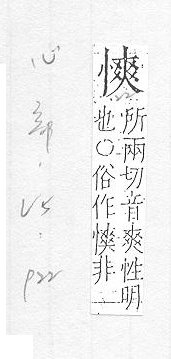 慡
所兩切音爽性明
也○俗作非
心部.V5.P22